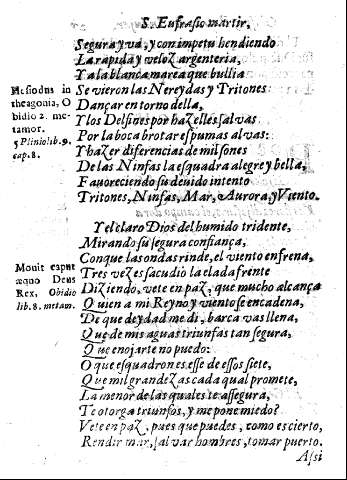 S. Eufrasio martir,
Segura y va, y con impetu hendiendo
La rapida y veloz argenteria,
Y a la blanca marea que bullia
Hesiodus in
Se vieron las Nereydas y Tritones
theagonia, O
Dançar en torno della,
bidio 2. me-
Y los Delfines por hazelles salvas
tamor.
Por la boca brotar espumas alvas:
5 Plinio lib. 9.
Y hazer diferencias de mil sones
cap. 8.
De las Ninfas la esquadra alegre y bella,
Favoreciendo su devido intento
Tritones, Ninfas, Mar, Aurora, y Viento.
Y el claro Dios del humido tridente,
Mirando su segura confiança,
Con que las ondas rinde, el viento enfrena,
Mouit caput
Tres vezes sacudio la elada frente
æquo Deus
Diziendo, vete en paz, que mucho alcança
Rex, Obidio
Quien a mi Reyno y viento se encadena,
lib. 8. metam.
De que deydad me di, barca vas llena,
Que de mis aguas triunfas tan segura,
Que enojarte no puedo:
O que esquadron es esse de essos siete,
Que mil grandezas cada qual promete,
La menor de las quales te assegura,
Te otorga triunfos, y me pone miedo?
Vete en paz, pues que puedes, como es cierto,
Rendir mar, salvar hombres, tomar puerto.
Assi